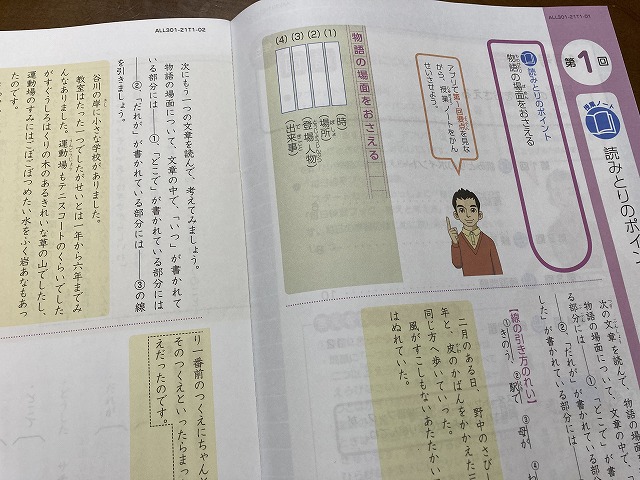 ALL301-21T1-01
第1回
授業ノート
読みとりのポイン
読みとりのポイント
物語の場面をおさえる
アプリで第1回要点を見な
がら、授業ノートをかん
せいさせよう。
物語の場面をおさえる
(1)
(2)
(3)
(4)
(時)
(場所)
(登場人物)
(出来事)
次の文章を読んで、物語の場面
物語の場面について、文章の中で、「い
る部分には――①、「どこで」が書かれている部分
――②、「だれが」が書かれている部分には
した」が書かれている部分には
【線の引き方のれい】
①きのう、②駅で ③母が
二月のある日、野中のさび
年と、皮のかばんをかかえた
同じ方へ歩いていった。
風がすこしもないあたたかい
はぬれていた。
ALL301-21T1-02
次にもう一つの文章を読んで、考えてみましょう。
物語の場面について、文章の中で、「いつ」が書かれて
いる部分には――①、「どこで」が書かれている部分には
――②、「だれが」が書かれている部分には――③の線
を引きましょう。
谷川の岸に小さな学校がありました。
教室はたった一つでしたがせいとは一年から六年までみ
んなありました。運動場もテニスコートのくらいでした
がすぐうしろはくりの木のあるきれいな草の山でしたし、
運動場のすみにはごぼごぼつめたい水をふく岩あなもあっ
たのです。
り一番前のつくえにちゃんと
そのつくえといったらまっ
えだったのです。